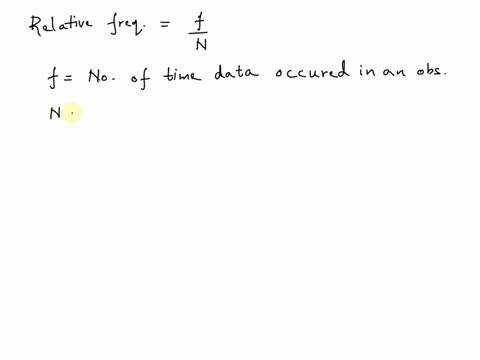 Relative freq. = f/N
f = No. of time data occured in an obs.
N